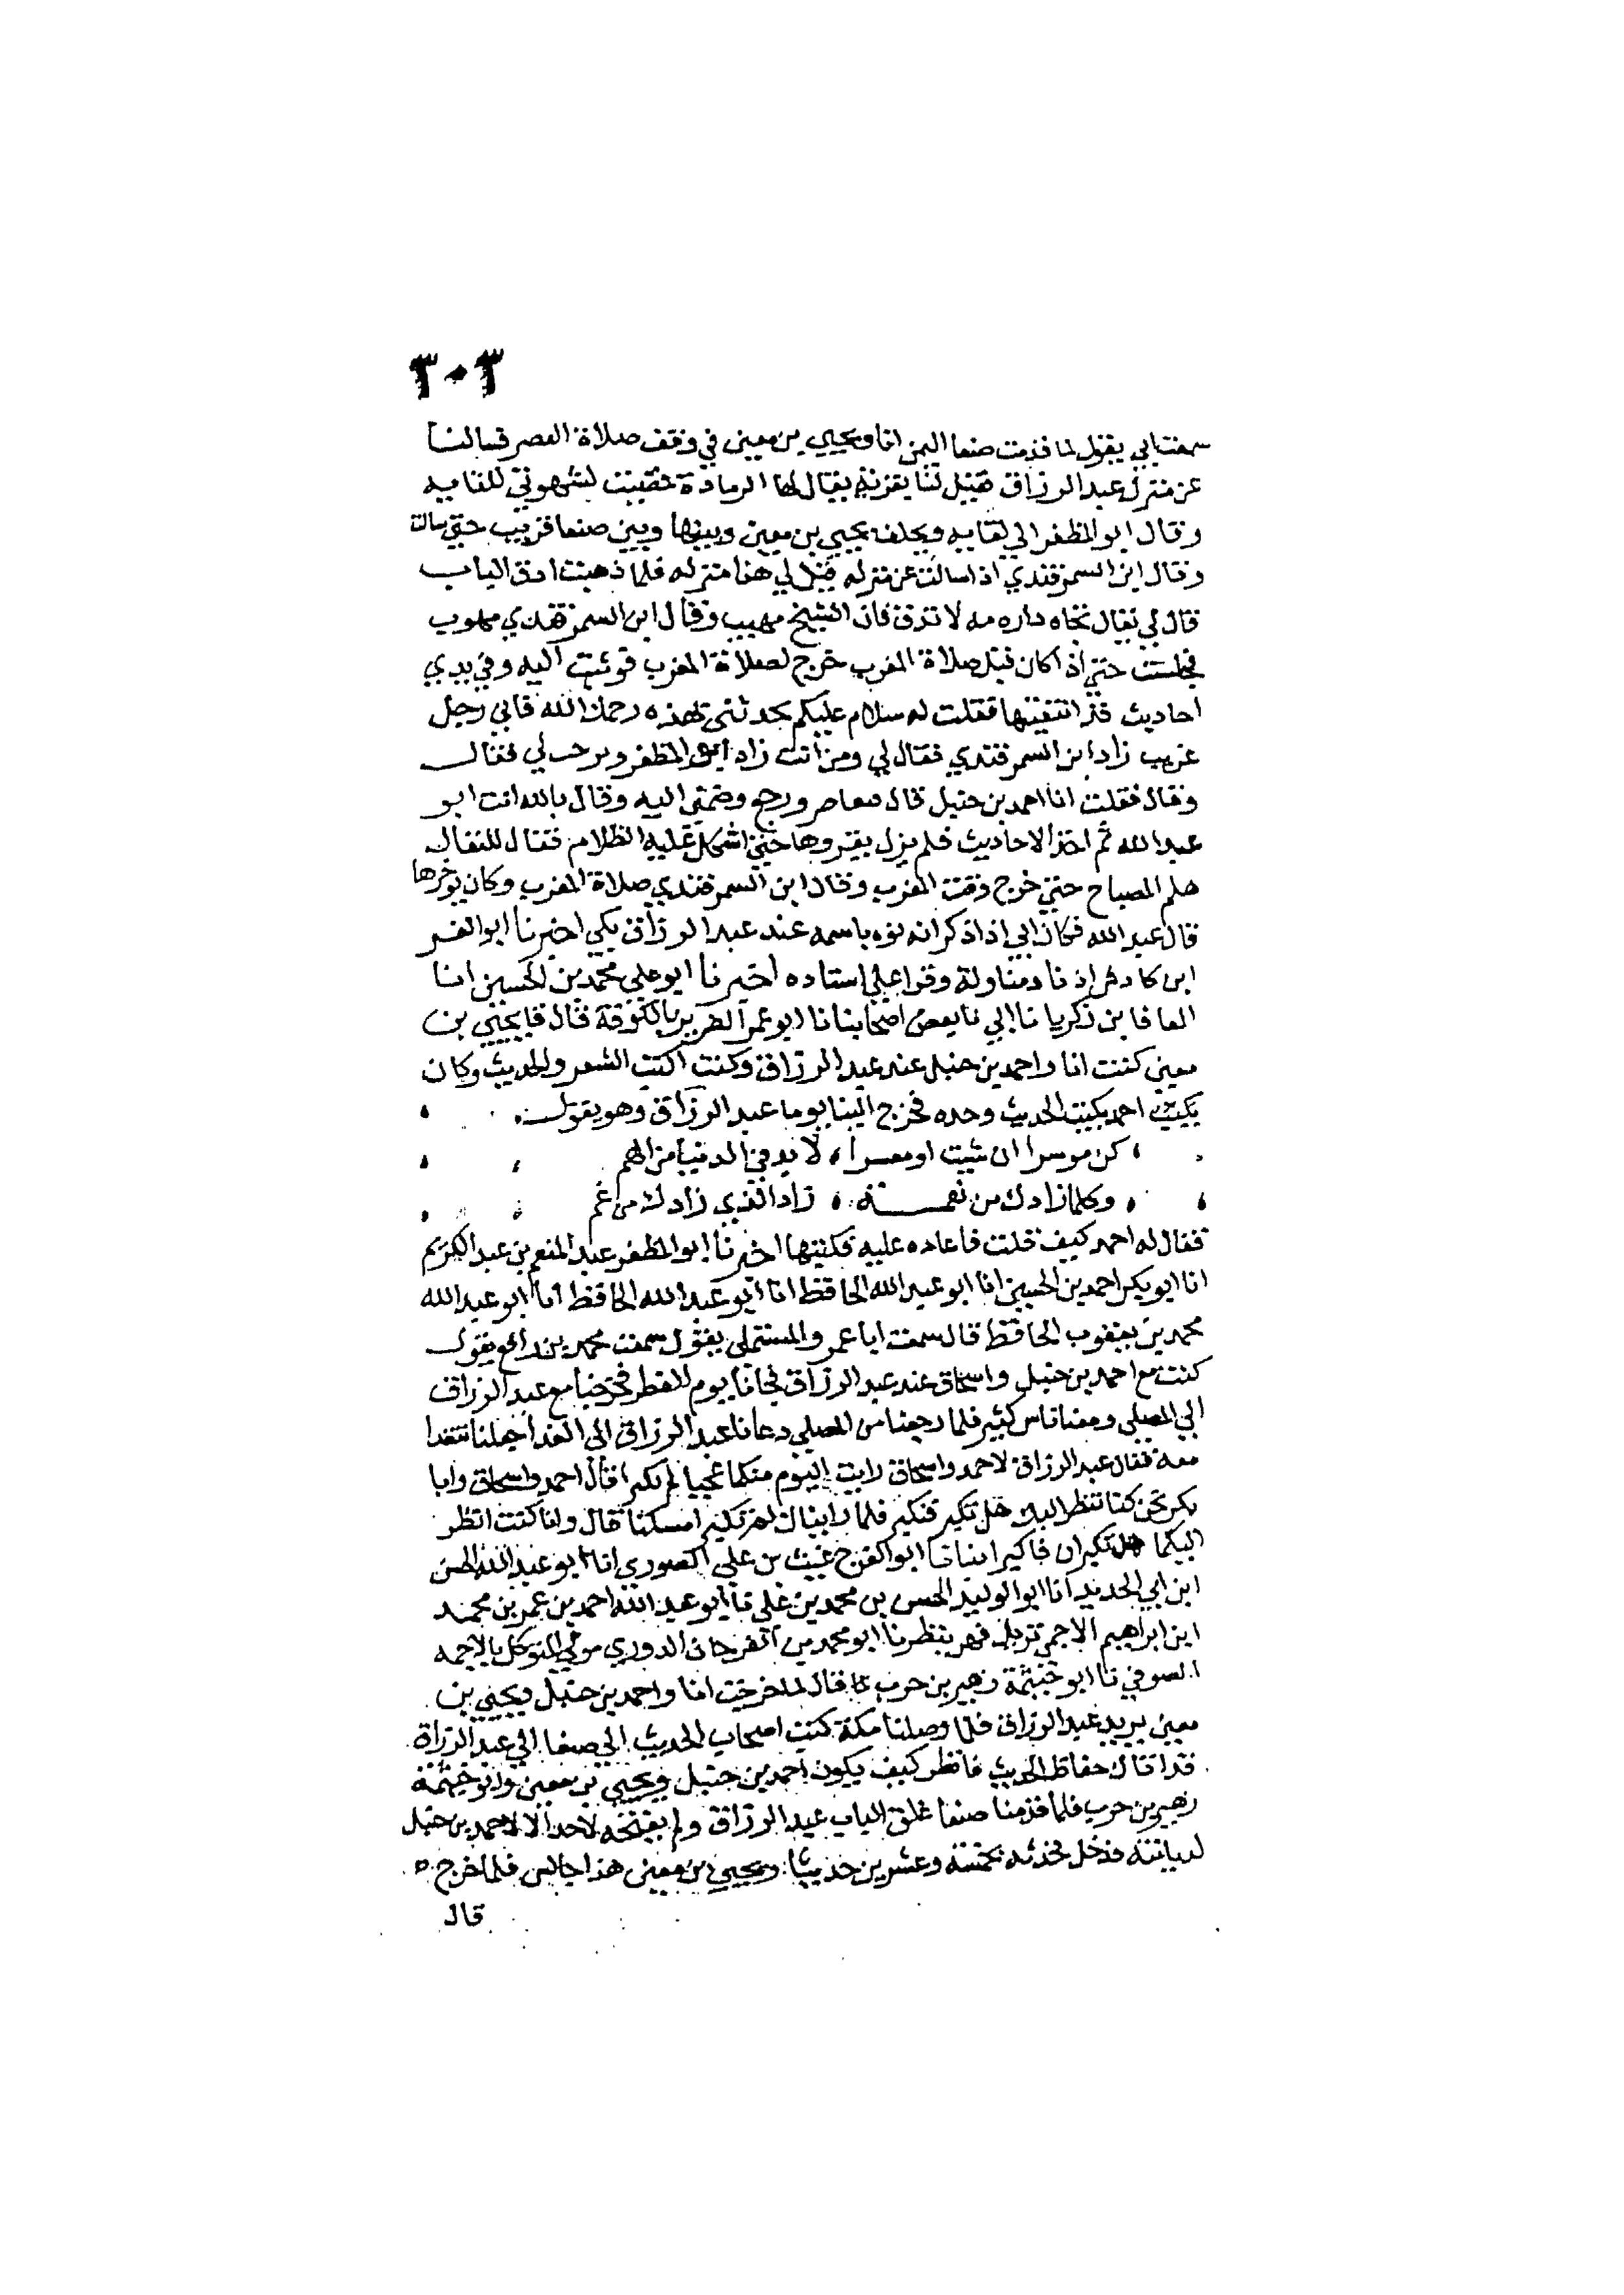 ٣٠٣
سمعت ابي يقول لما قدمت صنعا اليمن انا ويحيى بن معين في وقت صلاة العصر فسالنا
عن منزل عبد الرزاق فقيل لنا بقرية يقال لها الرمادة فمضيت لشهوتي للقايه
وقال ابو المظفر الى لقايه وتخلف يحيى بن معين وبينها وبين صنعا قريب حتى سالت
وقال ابن السمرقندي اذا سالت عن منزله قيل لي هذا منزله فلما ذهبت ادق الباب
قال لي بقال تجاه داره مه لا تدق فان الشيخ مهيب وقال ابن السمرقندي مهوب
فجلست حتى اذا كان قبل صلاة المغرب خرج لصلاة المغرب فوثبت اليه وفي يدي
احاديث قد انتقيتها فقلت له سلام عليكم تحدثني بهذه رحمك الله فاني رجل
غريب زاد ابن السمرقندي فقال لي ومن انت زاد ابو المظفر وبرحب لي فقال
وقال فقلت انا احمد بن حنبل قال فتقاصر ورجع وضمني اليه وقال بالله انت ابو
عبد الله ثم اخذ الاحاديث فلم يزل يقروها حتى اشكل عليه الظلام فقال للبقال
هلم المصباح حتى خرج وقت المغرب وقال ابن السمرقندي صلاة المغرب وكان يوخرها
قال عبد الله فكان ابي اذا ذكر انه نوه باسمه عند عبد الرزاق بكى اخبرنا ابو العز
ابن كادش اذنا ومناولة وقرا علي استاده اخبرنا ابو علي محمد بن الحسين انا
المعافا بن زكريا نا ابي نا بعض اصحابنا نا ابو عمر الضرير بالكوفة قال قا يحيى بن
معين كنت انا واحمد بن حنبل عند عبد الرزاق وكنت اكتب الشعر والحديث وكان
يكتب احمد يكتب الحديث وحده فخرج الينا يوما عبد الرزاق وهو يقول
كن موسرا ان شيت او معسرا لا بد في الدنيا من الهم
وكلما زادك من نعمة زاد الذي زادك من غم
فقال له احمد كيف قلت فاعاده عليه فكتبها اخبرنا ابو المظفر عبد المنعم بن عبد الكريم
انا ابو بكر احمد بن الحسين انا ابو عبد الله الحافظ انا ابو عبد الله الحافظ انا ابو عبد الله
محمد بن يعقوب الحافظ قال سمعت ابا عمرو المستملي يقول سمعت محمد بن رافع يقول
كنت مع احمد بن حنبل واسحاق عند عبد الرزاق فجانا يوم الفطر فخرجنا مع عبد الرزاق
الى المصلى ومعنا ناس كثير فلما رجعنا من المصلى دعانا عبد الرزاق الى الغدا فجعلنا نتغدا
معه فقال عبد الرزاق لاحمد واسحاق رايت اليوم منكما عجبا لم تكبرا قال احمد واسحاق وابا
بكر نحن كنا ننظر اليك هل تكبر فنكبر فلما رايناك لم تكبر امسكنا قال وانا كنت انظر
اليكما هل تكبران فاكبر انبانا ابو الفرج غيث بن علي الصوري انا ابو عبد الله الحسن
ابن ابي الحديد انا ابو الوليد الحسن بن محمد بن علي نا ابو عبد الله احمد بن عمر بن محمد
ابن ابراهيم الاجمي نزيل فهر بنظرنا ابو محمد بن الفرجان الدوري مولى المتوكل بالاجمه
الصوفي نا ابو خيثمة زهير بن حرب قال لما خرجت انا واحمد بن حنبل ويحيى بن
معين يريد عبد الرزاق فلما وصلنا مكة كتب اصحاب الحديث الى صنعا الى عبد الرزاق
قد اتاك حفاظ الحديث فانظر كيف يكون احمد بن حنبل ويحيى بن معين وابو خيثمة
زهير بن حرب فلما قدمنا صنعا غلق الباب عبد الرزاق ولم يفتحه لاحد الا لاحمد بن حنبل
لديانته فدخل فحدثه بخمسة وعشرين حديثا ويحيى بن معين هذا جالس فلما خرج
قال